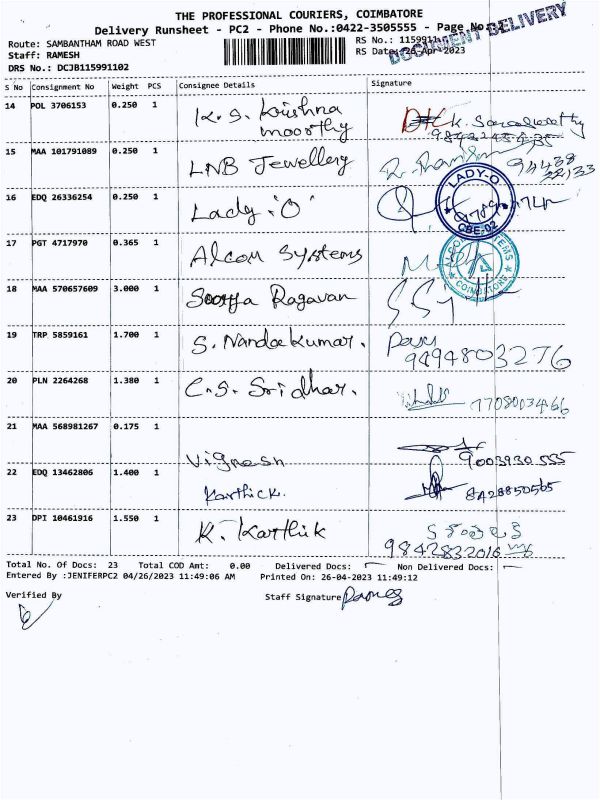 THE PROFESSIONAL COURIERS, COIMBATORE
Delivery Runsheet - PC2 - Phone No.:0422-3505555 - Page No.: 2
DOCUMENT DELIVERY
Route: SAMBANTHAM ROAD WEST
Staff: RAMESH
DRS No.: DCJB115991102
RS No.:
RS Date: 26-Apr-2023
S No Consignment No Weight PCS Consignee Details Signature
14 POL 3706153 0.250 1 K. S. Krishna moorthy
15 MAA 101791089 0.250 1 LNB Jewellery 94438 22133
16 EDQ 26336254 0.250 1 Lady 'O' LADY-O CBE-02
17 PGT 4717970 0.365 1 Alcom Systems COIMBATORE
18 MAA 570657609 3.000 1 Soorya Ragavan
19 TRP 5859161 1.700 1 S. Nandakumar. 9494803276
20 PLN 2264268 1.380 1 C.S. Sridhar. 7708003466
21 MAA 568981267 0.175 1 Vignesh 9003930535
22 EDQ 13462806 1.400 1 Karthick. 8428850505
23 DPI 10461916 1.550 1 K. Karthik 9842832016
Total No. Of Docs: 23 Total COD Amt: 0.00 Delivered Docs: Non Delivered Docs:
Entered By :JENIFERPC2 04/26/2023 11:49:06 AM Printed On: 26-04-2023 11:49:12
Verified By Staff Signature Ramesh